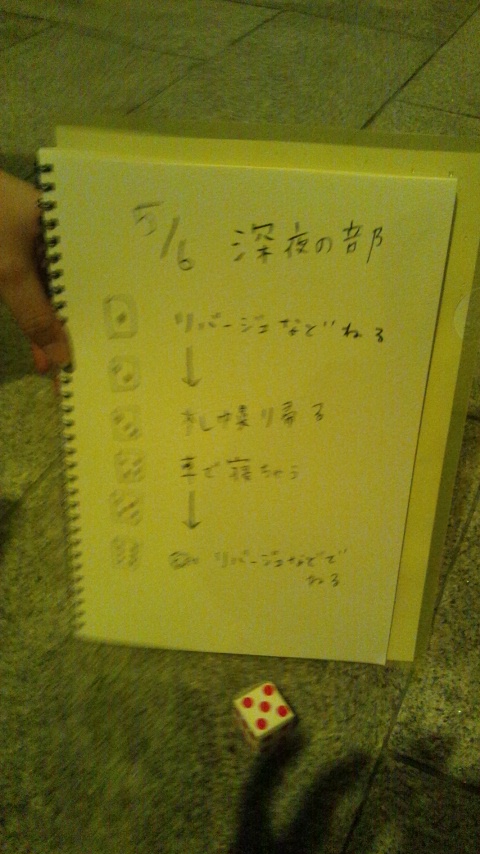 5/6 深夜の部
リバージュなどでねる
↓
乗り帰る
車で寝ちゃう
↓
リバージュなどで
ねる